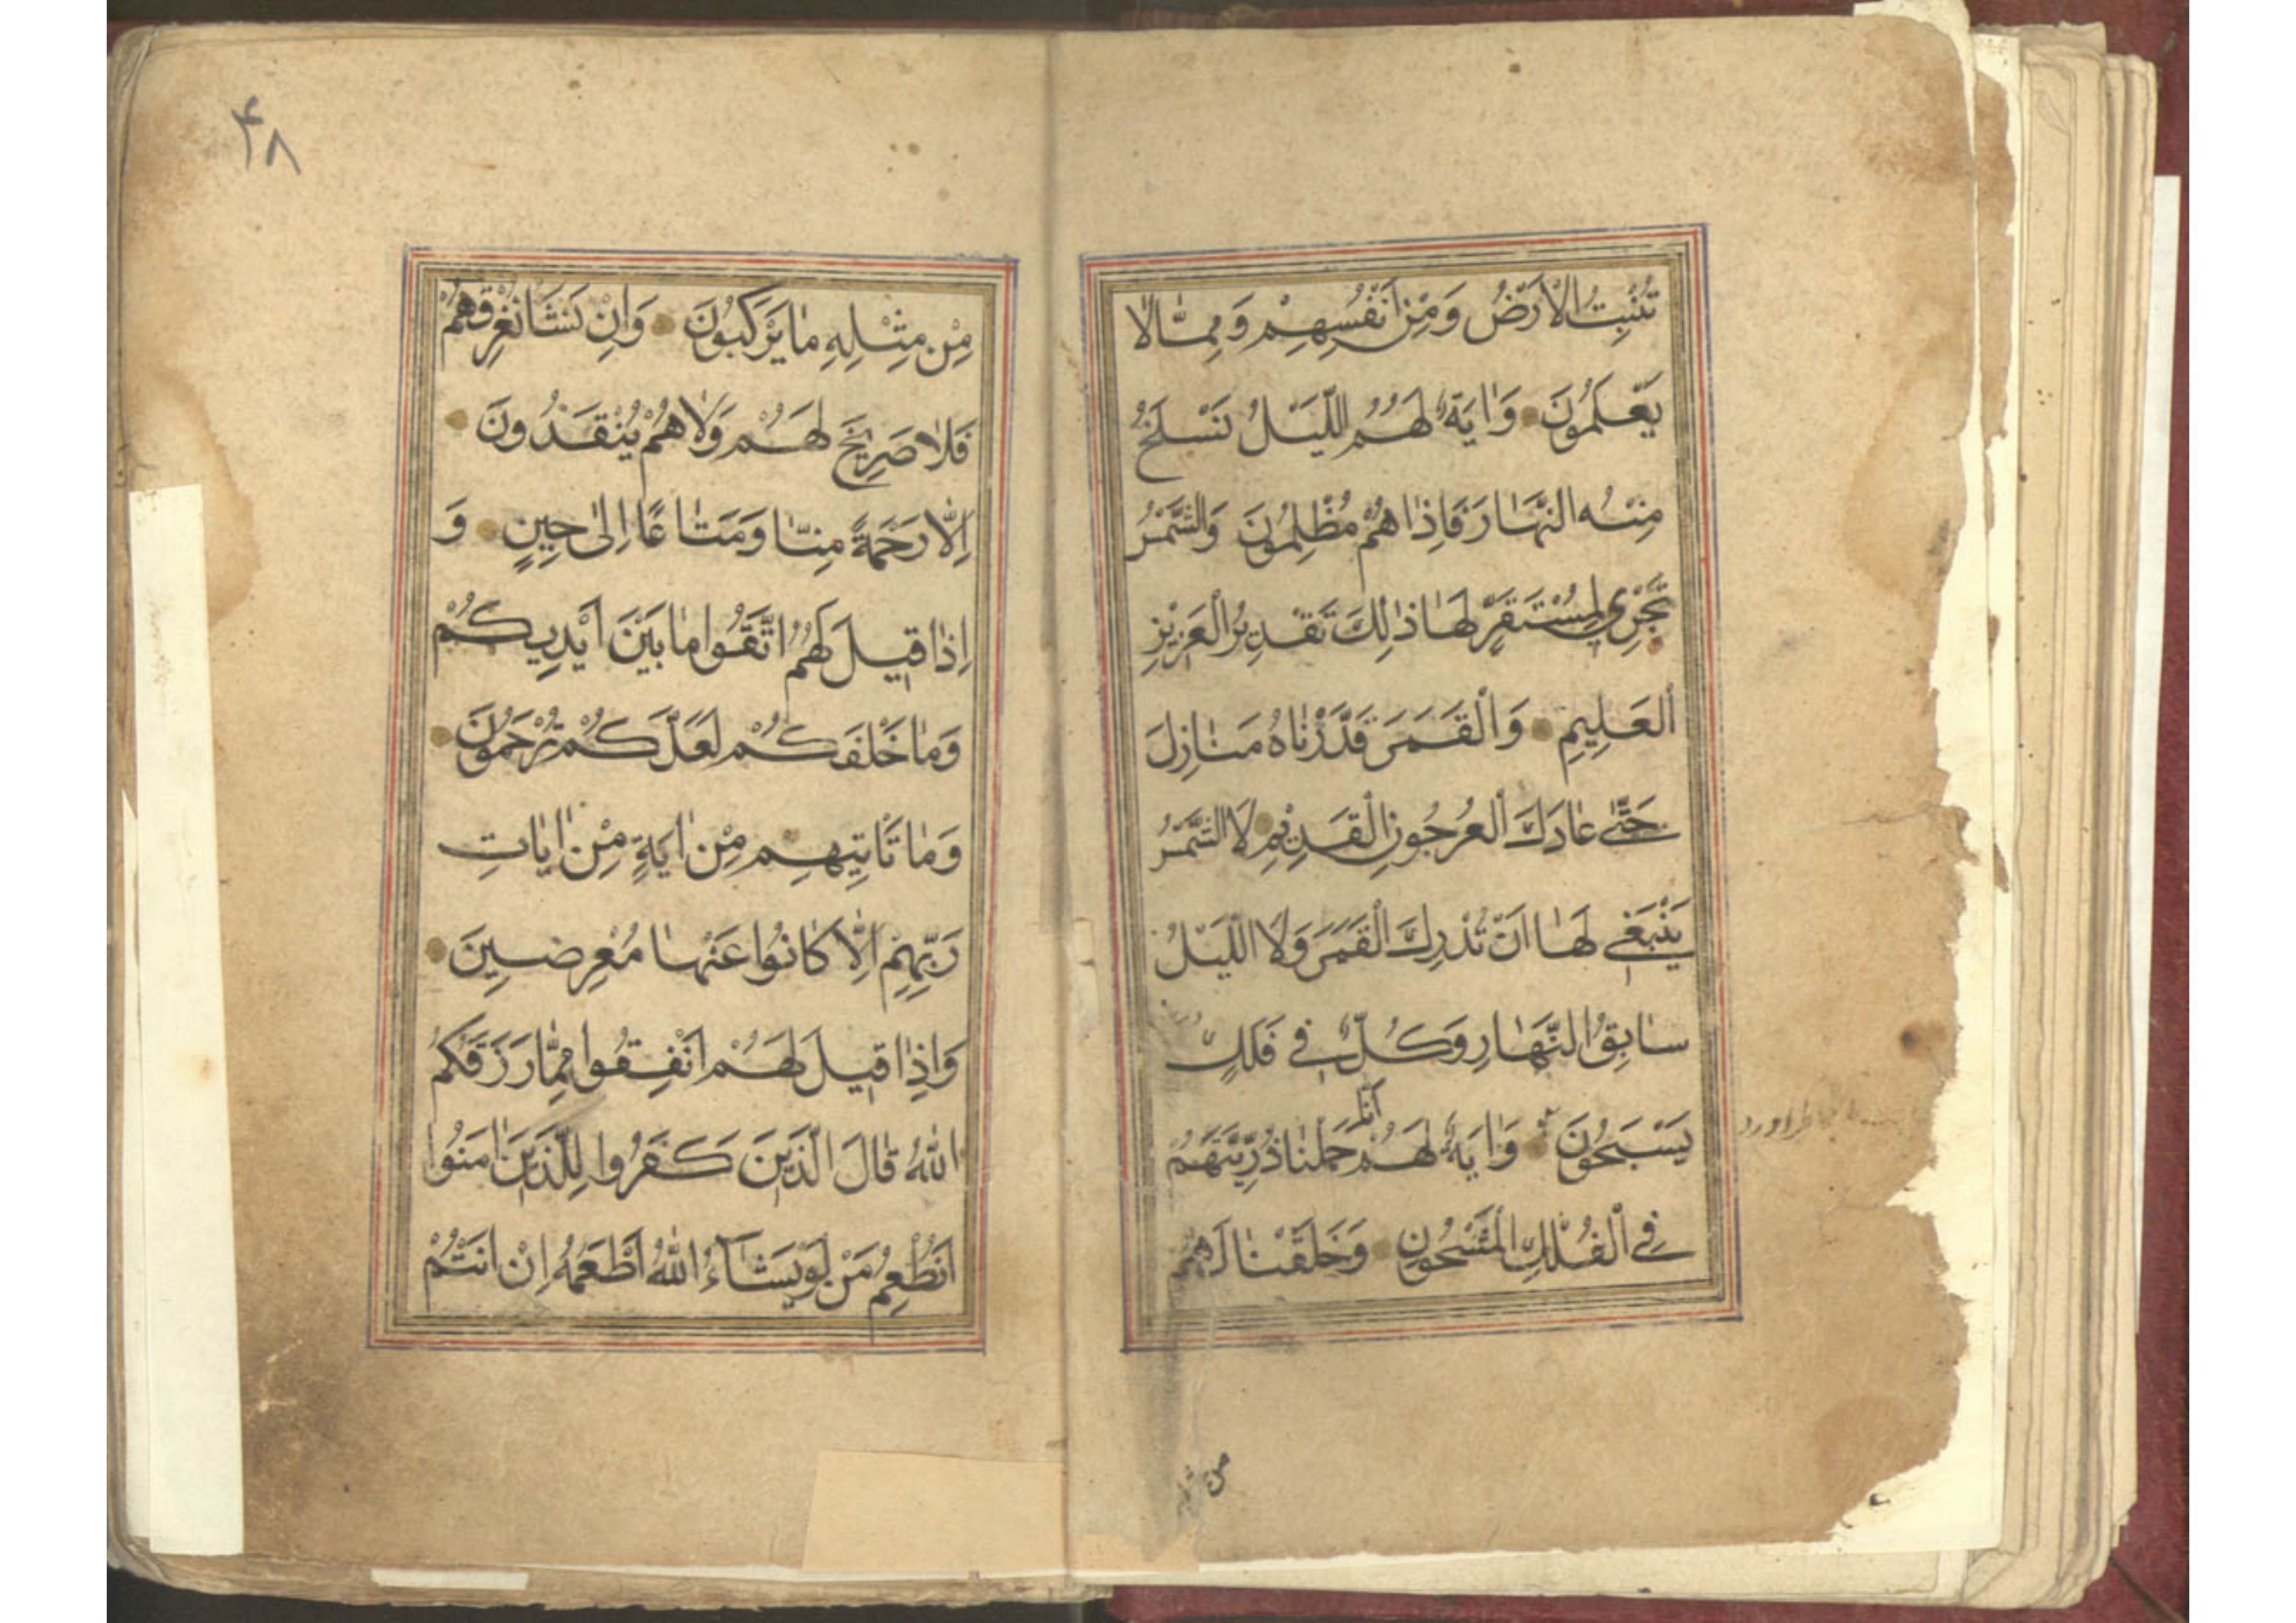 تُنْبِتُ الْاَرْضُ وَمِنْ اَنْفُسِهِمْ وَمِمَّا لَا
يَعْلَمُونَ وَاٰيَةٌ لَهُمُ اللَّيْلُ نَسْلَخُ
مِنْهُ النَّهَارَ فَاِذَا هُمْ مُظْلِمُونَ وَالشَّمْسُ
تَجْرِي لِمُسْتَقَرٍّ لَهَا ذٰلِكَ تَقْدِيرُ الْعَزِيزِ
الْعَلِيمِ وَالْقَمَرَ قَدَّرْنَاهُ مَنَازِلَ
حَتّٰى عَادَ كَالْعُرْجُونِ الْقَدِيْمِ لَا الشَّمْسُ
يَنْبَغِي لَهَا اَنْ تُدْرِكَ الْقَمَرَ وَلَا اللَّيْلُ
سَابِقُ النَّهَارِ وَكُلٌّ فِي فَلَكٍ
يَسْبَحُونَ وَاٰيَةٌ لَهُمْ اَنَّا حَمَلْنَا ذُرِّيَّتَهُمْ
فِي الْفُلْكِ الْمَشْحُونِ وَخَلَقْنَا لَهُمْ
من
۴۸
مِنْ مِثْلِهِ مَا يَرْكَبُونَ وَاِنْ نَشَأْ نُغْرِقْهُمْ
فَلَا صَرِيخَ لَهُمْ وَلَا هُمْ يُنْقَذُونَ
اِلَّا رَحْمَةً مِنَّا وَمَتَاعًا اِلٰى حِينٍ وَ
اِذَا قِيلَ لَهُمُ اتَّقُوا مَا بَيْنَ اَيْدِيكُمْ
وَمَا خَلْفَكُمْ لَعَلَّكُمْ تُرْحَمُونَ
وَمَا تَأْتِيهِمْ مِنْ اٰيَةٍ مِنْ اٰيَاتِ
رَبِّهِمْ اِلَّا كَانُوا عَنْهَا مُعْرِضِينَ
وَاِذَا قِيلَ لَهُمْ اَنْفِقُوا مِمَّا رَزَقَكُمُ
اللّٰهُ قَالَ الَّذِينَ كَفَرُوا لِلَّذِينَ اٰمَنُوا
اَنُطْعِمُ مَنْ لَوْ يَشَاۤءُ اللّٰهُ اَطْعَمَهُ اِنْ اَنْتُمْ